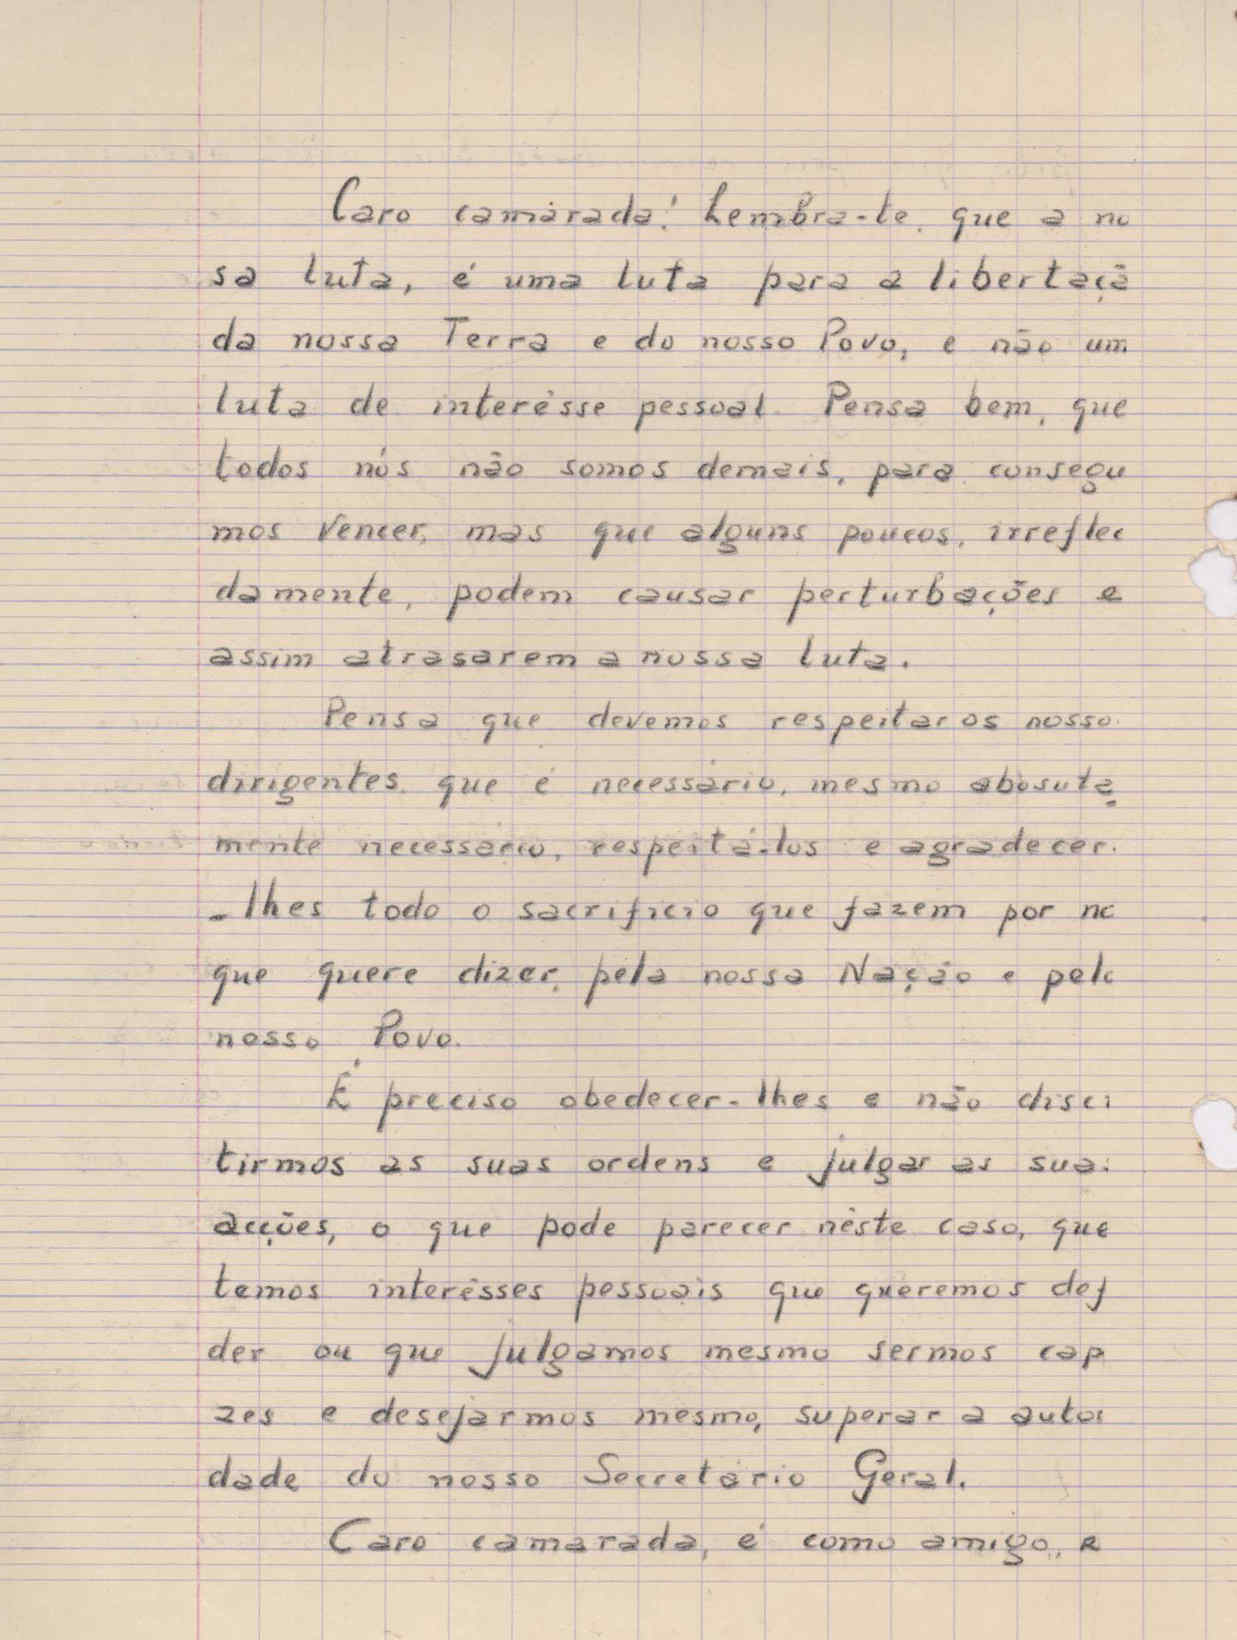 Caro camàrada! Lembra-te. que a no
sa luta, é uma luta para a libertaçã
da nossa Terra e do nosso Povo, e não um
luta de interêsse pessoal. Pensa bem, que
todos nós não somos demais, para consegu
mos vencer, mas que alguns poucos, irreflec
damente, podem causar perturbações e
assim atrasarem a nossa luta.
Pensa que devemos respeitar os nosso
dirigentes que é necessário, mesmo abosuta
mente necessário, respeitá-los e agradecer-
-lhes todo o sacrifício que fazem por no
que quere dizer, pela nossa Nação e pelo
nosso Povo.
É preciso obedecer-lhes e não discu
tirmos as suas ordens e julgar as suas
acções, o que pode parecer nêste caso, que
temos interêsses pessoais que queremos def
der ou que julgamos mesmo sermos cap
zes e desejarmos mesmo, superar a autor
dade do nosso Secretário Geral.
Caro camarada, é como amigo, e